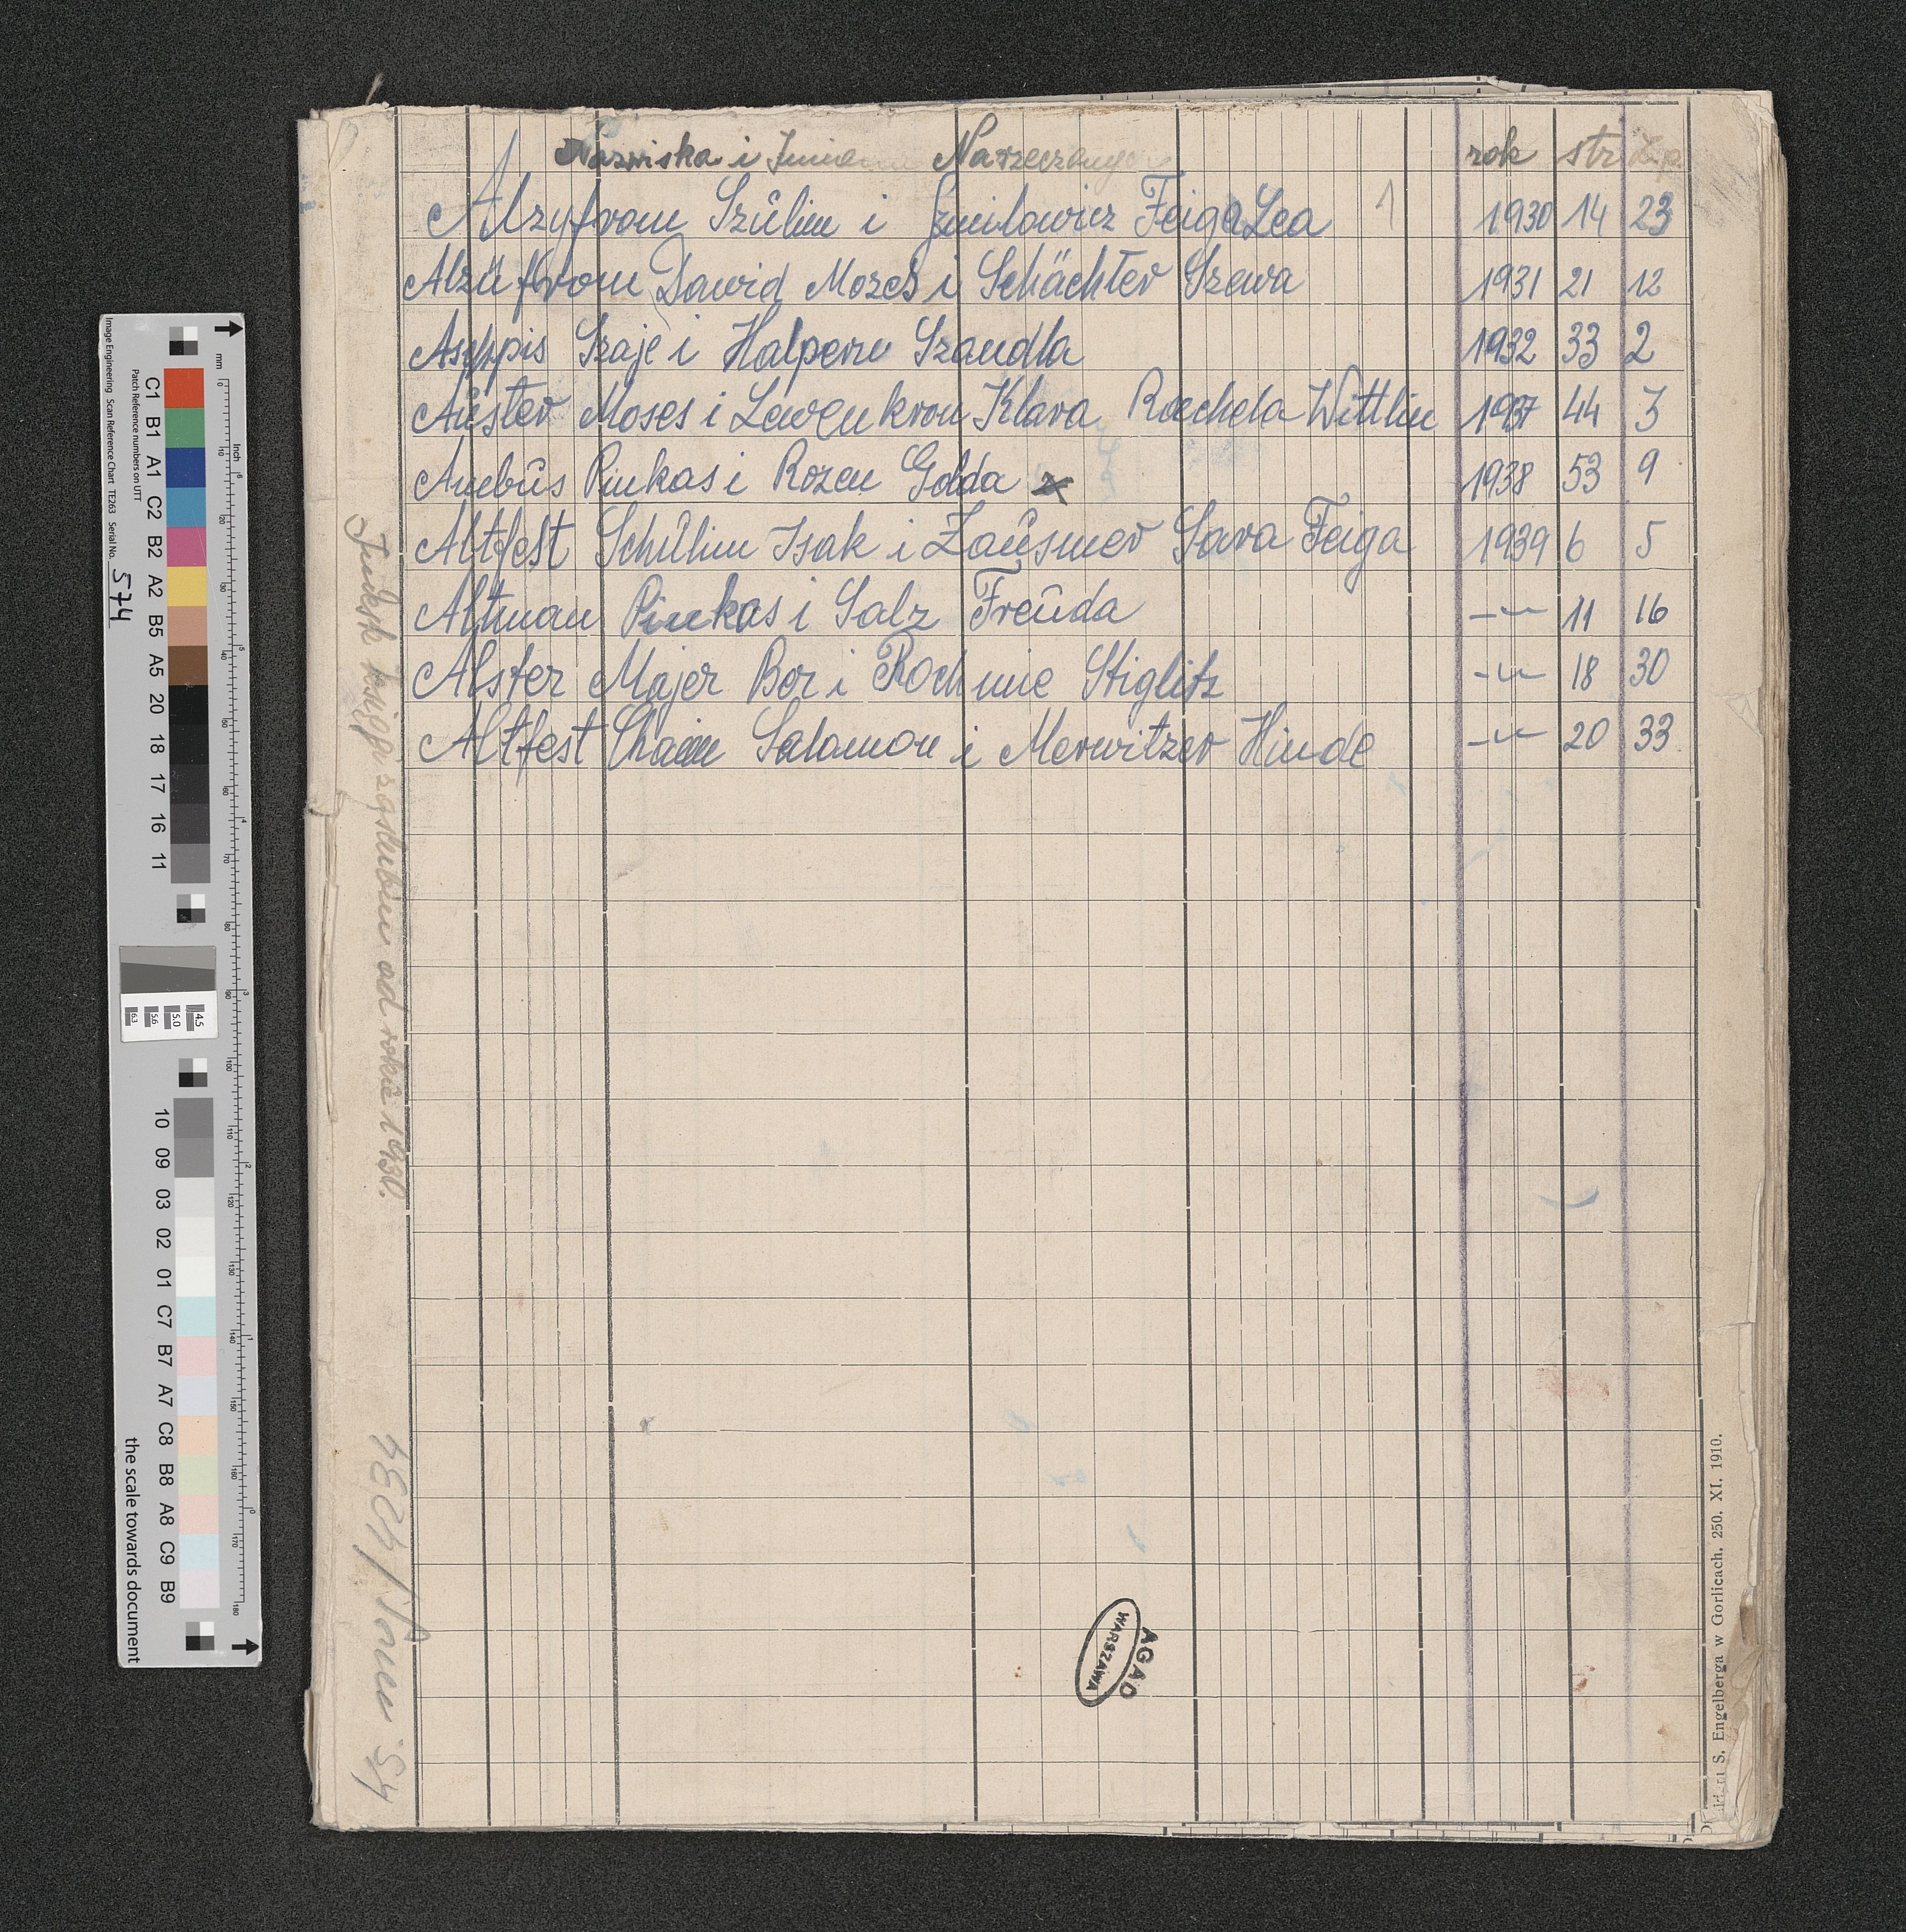 Nazwiska i Imiona Narzeczonego rok str L.p.
Alzufrom Szulim i Szmilowicz Feiga Lea 1 1930 14 23
Alzufrom Dawid Mozes i Schächter Szewa 1931 21 12
Szaje i Halpern Szandla 1932 33 2
Auster Moses i Lewenkron Klara Rachela Wittlin 1937 44 3
Pinkas i Rozen Golda x 1938 53 9
Altfest Schulim Isak i Zausmer Sara Feiga 1939 6 5
Altman Pinkas i Salz Freuda -"- 11 16
Alster Majer Ber i Rochme Stiglitz -"- 18 30
Altfest Chaim Salamon i Merwitzer Hinde -"- 20 33
Indeks księgi zaślubin od roku 1930.
AGAD
WARSZAWA
S. Engelberga w Gorlicach. 250. XI. 1910.
Image Engineering Scan Reference Chart TE263 Serial No. 574
Patch Reference numbers on UTT
C1 B1 A1 C2 B2 A2 B5 A5 20 18 17 16 11
10 09 03 02 01 C7 B7 A7 C8 B8 A8 C9 B9
mm
inch
the scale towards document